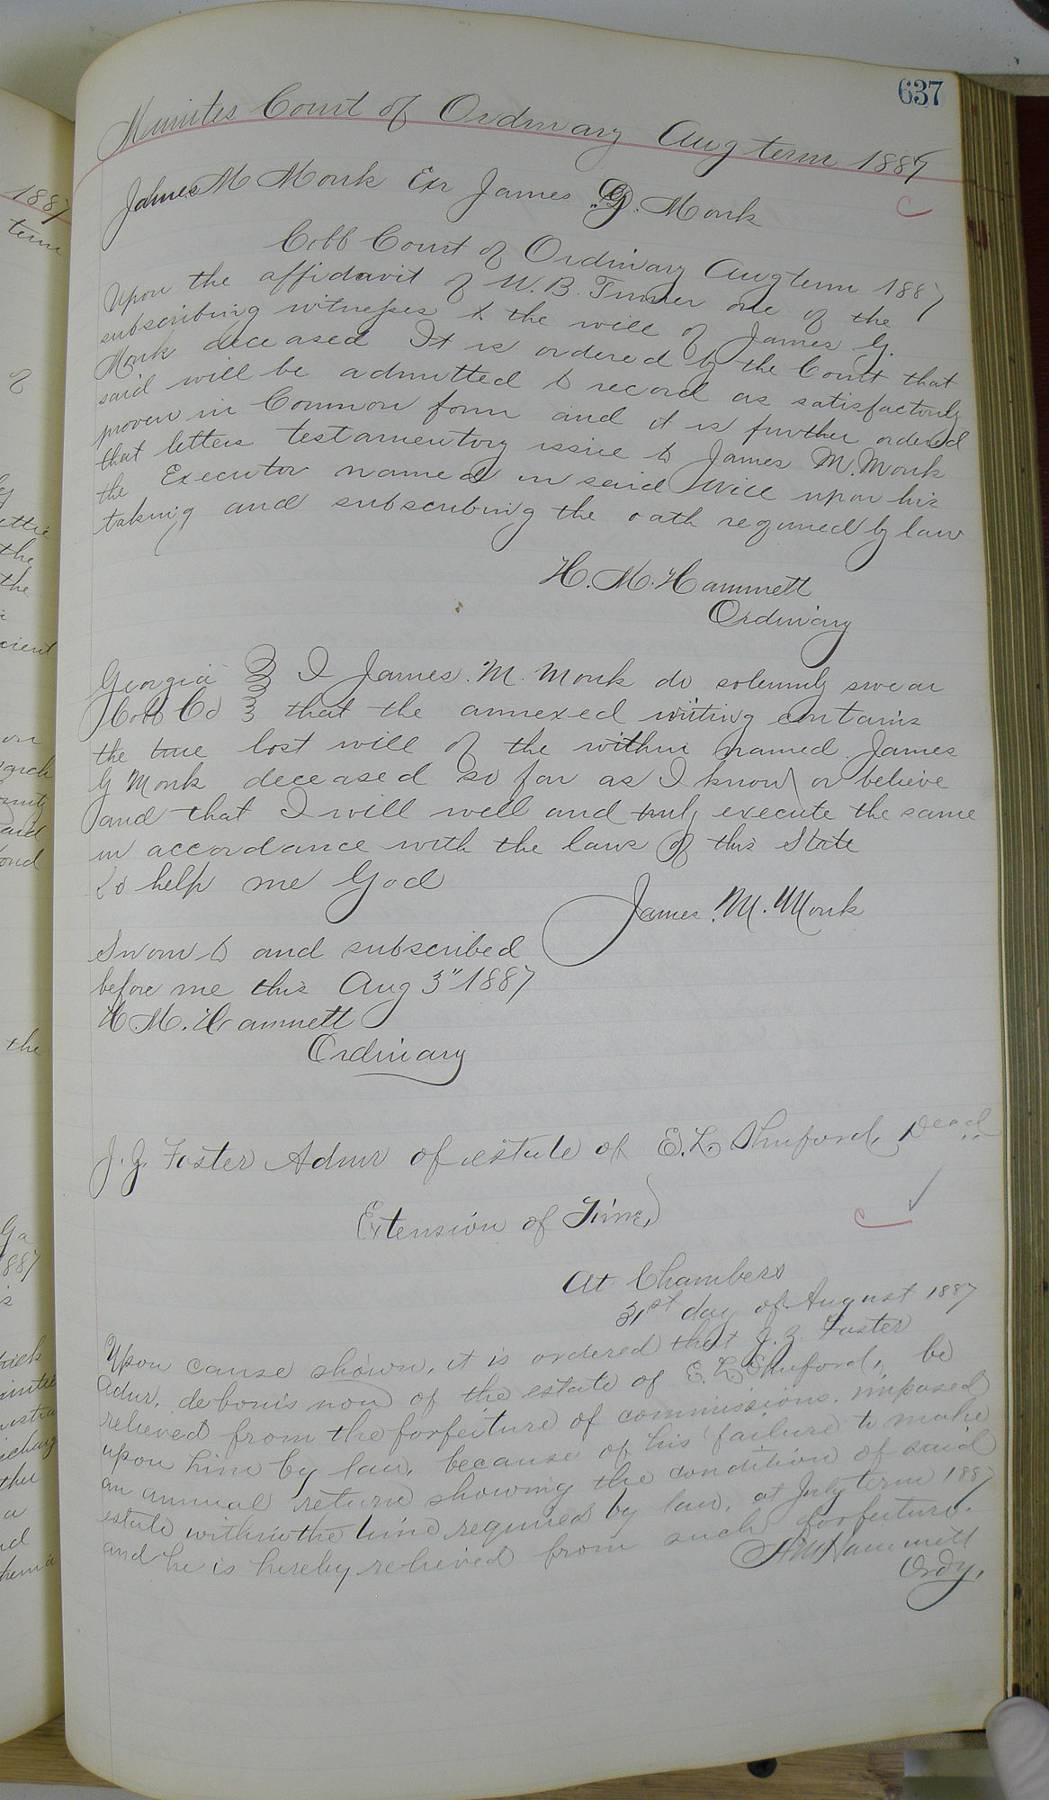 637
Minutes Court of Ordinary Aug term 1887
James M Monk Exr James G. Monk
Cobb Court of Ordinary Aug term 1887
Upon the affidavit of W. B. Turner one of the
subscribing witnesses to the will of James G.
Monk deceased It is ordered by the Court that
said will be admitted to record as satisfactorily
proven in Common form and it is further ordered
that letters testamentory issue to James M. Monk
the Executor named in said Will upon his
taking and subscribing the oath required by law
H. M. Hammett
Ordinary
Georgia I James. M. Monk do solemnly swear
Cobb Co that the annexed writing contains
the true last will of the within named James
G Monk deceased so far as I know or believe
and that I will well and truly execute the same
in accordance with the laws of this State
So help me God
James. M. Monk
Sworn to and subscribed
before me this Aug 3" 1887
H. M. Hammett
Ordinary
J. Z. Foster Admr of estate of E. L. Shuford, Decd
Extension of Time,
At Chambers
31st day of August 1887
Upon cause shown, it is ordered that J. Z. Foster
Admr. debonis non of the estate of E. L. Shuford, be
relieved from the forfeiture of commissions. imposed
upon him by law, because of his failure to make
an annual return showing the condition of said
estate within the time required by law, at July term 1887
and he is hereby relieved from such forfeiture.
H M Hammett
Ordy.
1887
term
of
the
the
cient
on
said
the
Ga
1887
a